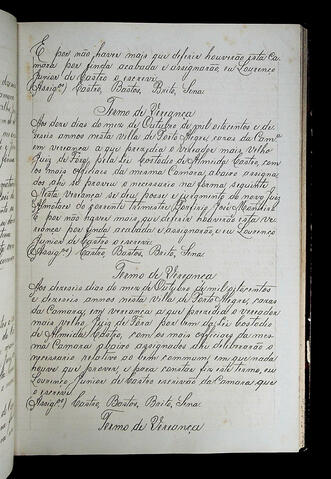 E por não haver mais que deferir houverão esta Ca-
mara por finda acabada e assignarão, eu Lourenço
Junior de Castro o escrevi.
(Assig.os) Castro, Bastos, Brito, Sena.
Termo de Vereança
Aos doze dias do mez de Outubro de mil oitocentos e de-
zeseis annos nesta villa de Porto Alegre, casas da Cam.ra
em vereança a que prezidio o Vereador mais velho
Juiz de Fora pela Lei Custodio de Almeida Castro, com
os mais officiaes da mesma Camara, abaixo assigna-
dos ahi se proveu o necessario na forma seguinte
Nesta vereança se deu posse e juramento do novo Juiz
Almotace do corrente trimestre José Monteiro
E por não haver mais que deferir houverão esta ve-
reança por finda acabada e assignarão, eu Lourenço
Junior de Castro o escrevi.
(Assig.os) Castro, Bastos, Brito, Sena.
Termo de Vereança
Aos dezeseis dias do mez de Outubro de mil oitocentos
e dezeseis annos nesta villa de Porto Alegre, casas
da Camara, em vereança a que prezidio o vereador
mais velho Juiz de Fora por bem da Lei Custodio
de Almeida Castro, com os mais officiaes da mes-
ma Camara abaixo assignados ahi deliberarão o
necessario relativo ao bem commum em que nada
houve que prover, e para constar fiz este termo, eu
Lourenço Junior de Castro escrivão da Camara que
o escrevi
(Assig.os) Castro, Bastos, Brito, Sena.
Termo de Vereança